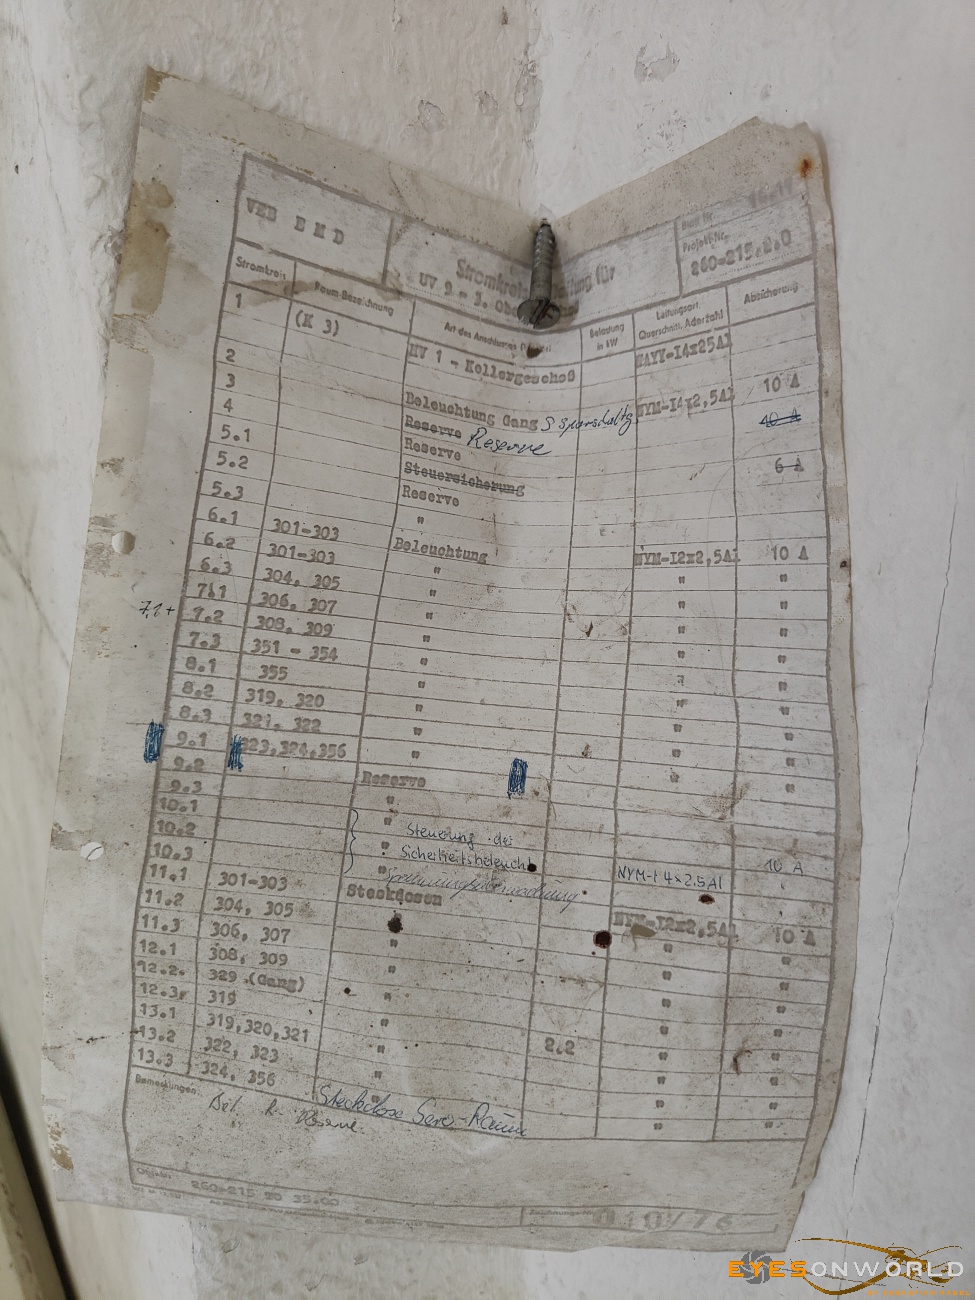 VEB E M D
Stromkreis für
UV 9 - 3.
Projekt-Nr.
260-215.2.0
Stromkreis Raum-Bezeichnung Art des Anschlusses Belastung in kW Leitungsart Querschnitt, Aderzahl Absicherung
1 (K 3) HV 1 - Kellergeschoß NAYY-I4x25Al
2 Beleuchtung Gang Sparschaltg NYM-I4x2,5Al 10 A
3 Reserve Reserve
4 Reserve
5.1 Steuersicherung 6 A
5.2 Reserve
5.3 "
6.1 301-303 Beleuchtung NYM-I2x2,5Al 10 A
6.2 301-303 " " "
6.3 304, 305 " " "
7.1 306, 307 " " "
7.1+
7.2 308, 309 " " "
7.3 351 - 354 " " "
8.1 355 " " "
8.2 319, 320 " " "
8.3 321, 322 " " "
9.1 323,324,356 " " "
9.2 Reserve
9.3 "
10.1 " Steuerung der
10.2 " Sicherheitsbeleucht NYM-I 4x2,5Al 10 A
10.3 " Spannungsüberwachung
11.1 301-303 Steckdosen NYM-I2x2,5Al 10 A
11.2 304, 305 " "
11.3 306, 307 " " "
12.1 308, 309 " " "
12.2. 329 (Gang) " " "
12.3 319 " " "
13.1 319,320,321 " 2.2 " "
13.2 322, 323 " " "
13.3 324, 356 " " "
Bemerkungen: Steckdose Sero-Raum
Reserve
260-215 20 35.00
EYESONWORLD